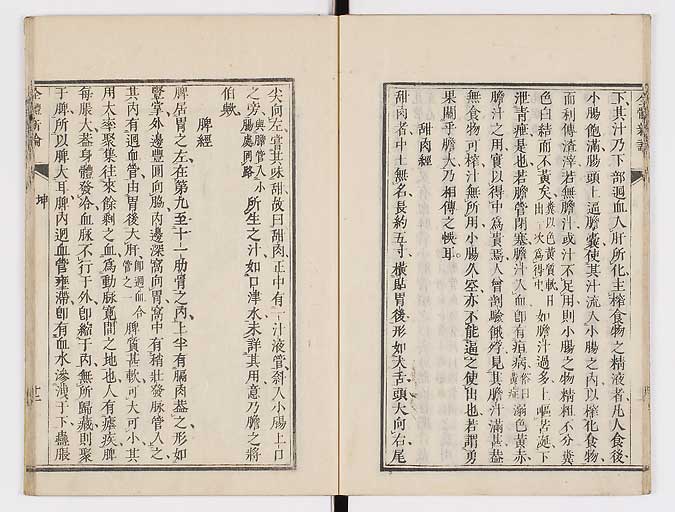 下、其汁乃下部迴血入肝所化、主榨食物之精液者、凡人食後、
小腸飽滿、腸頭上逼膽囊、使其汁流入小腸之內、以榨化食物、
而利傳渣滓、若無膽汁、或汁不足用、則小腸之物、精粗不分、糞
色白結而不黃矣、糞以色黃質軟日出一次為得中如膽汁過多、上嘔苦涎、下
泄青痾是也、若膽管閉塞、膽汁入血、卽有疸病、俗曰黃病溺色黃赤、
膽汁之用、實以得中為貴焉、人曾剖驗餓殍、見其膽汁滿甚、蓋
無食物可榨、汁無所用、小腸久空、亦不能逼之使出也、若謂勇
果關乎膽大、乃相傳之悞耳、
甜肉經
甜肉者、中土無名、長約五寸、橫貼胃後、形如犬舌、頭大向右、尾
尖向左、嘗其味甜、故曰甜肉、正中有一汁液管、斜入小腸上口
之旁、與膽管入小腸處同路所生之汁、如口津水、未詳其用意、乃膽之將
伯歟、
脾經
脾居胃之左、在第九至十一肋骨之內、上半有膈肉蓋之、形如
豎掌、外邊豐圓向脇、內邊深窩向胃、窩中有稍壯發脈管入之、
其內有迴血管、由胃後大肝、卽迴血入肝管之一脾質甚軟、可大可小、其
用大率聚集往來餘剩之血、為動脈寬閒之地也、人有瘧疾、脾
每脹大、蓋身體發冷、血脈不行于外、卽縮于內、無所歸藏、則聚
于脾、所以脾大耳、脾內迴血管壅滯、卽有血水滲洩于下、蠱脹
全體新論
坤